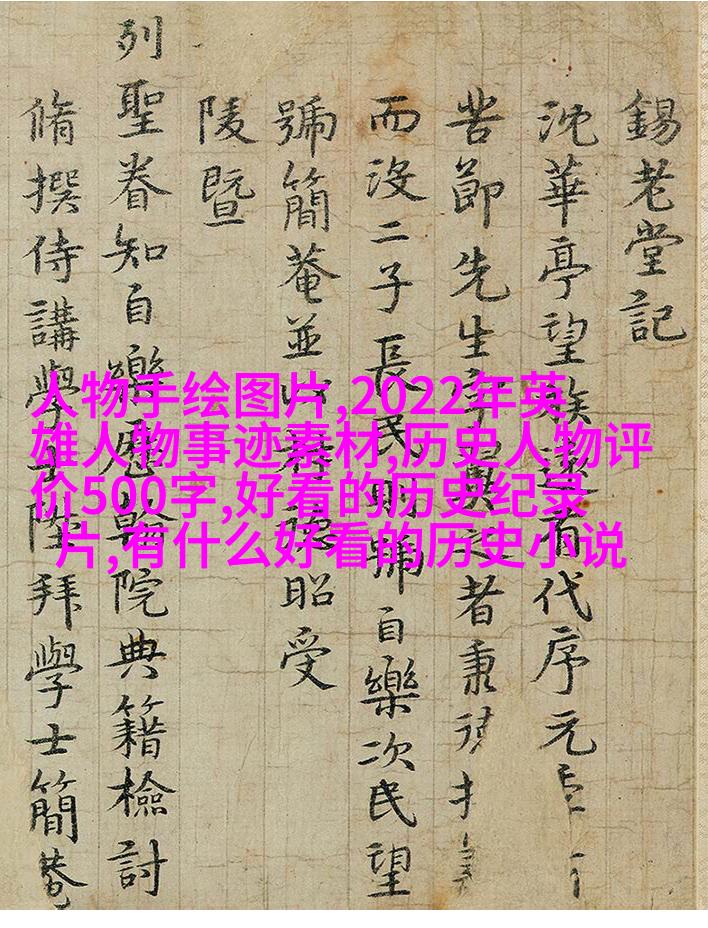 錫老堂記
沈華亭望族有代序元
苦節先生之者秉
而沒二子長民則號自樂次民望
號簡菴並以昭受
陵暨
列聖眷知自樂歷翰院典籍檢討
脩撰侍講學士陞拜學士簡菴
人物手绘图片,2022年英
雄人物事迹素材,历史人物评
价500字,好看的历史纪录
片,有什么好看的历史小说